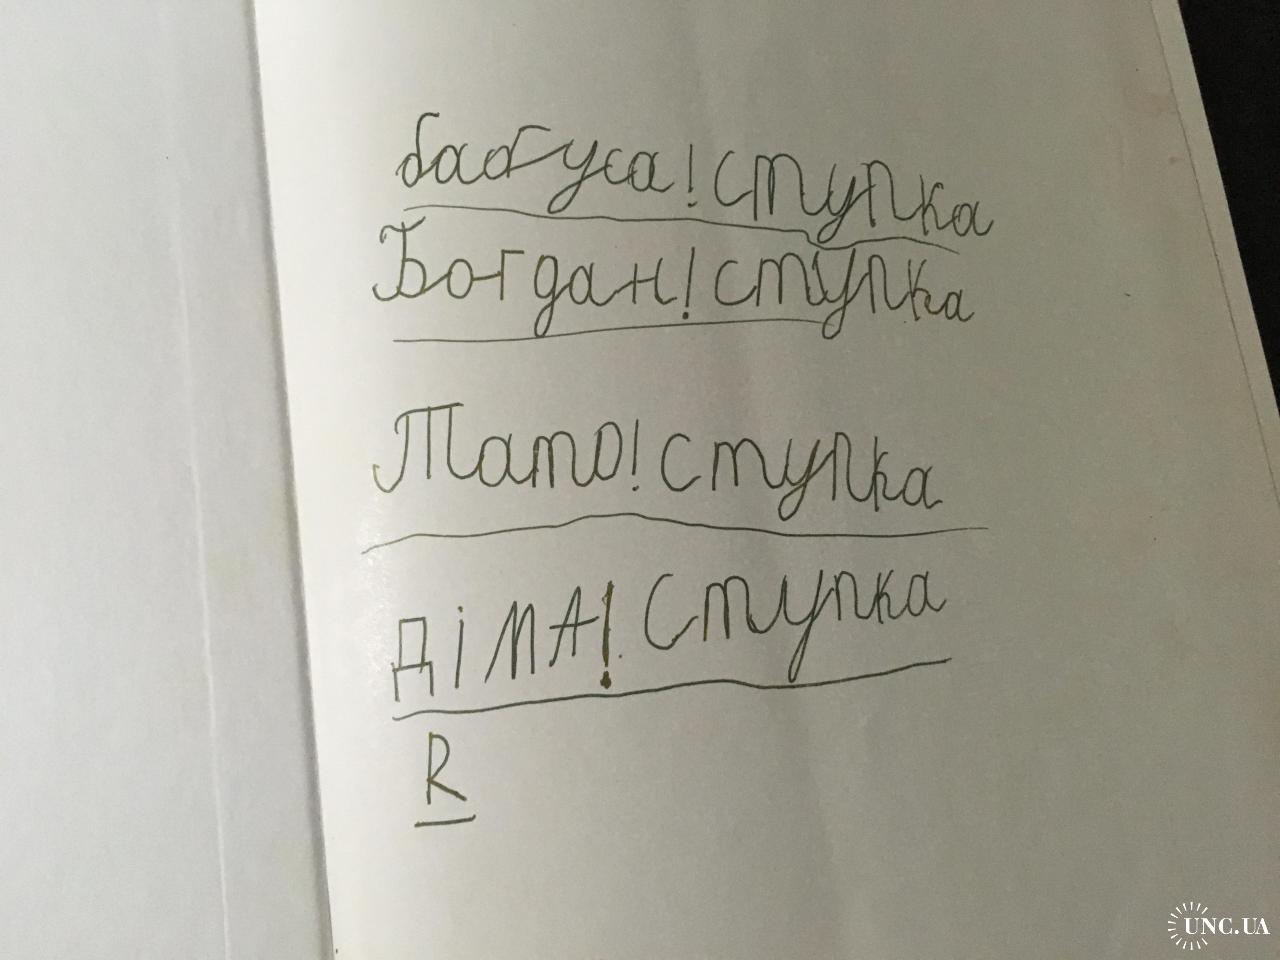 бабуса! ступка
Богдан! ступка
Тато! ступка
ДІМА! Ступка
R
UNC.UA